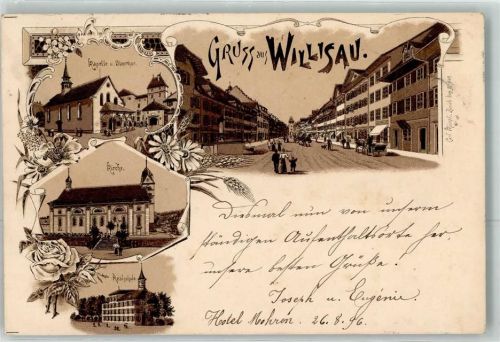 Gruss aus Willisau.
Kapelle u. Obertor.
Kirche.
Diesmal nun von unserm
ständigen Aufenthaltsorte her,
unsere besten Grüße!
Joseph u. Eugénie.
Hotel Mohren. 26.8.96.